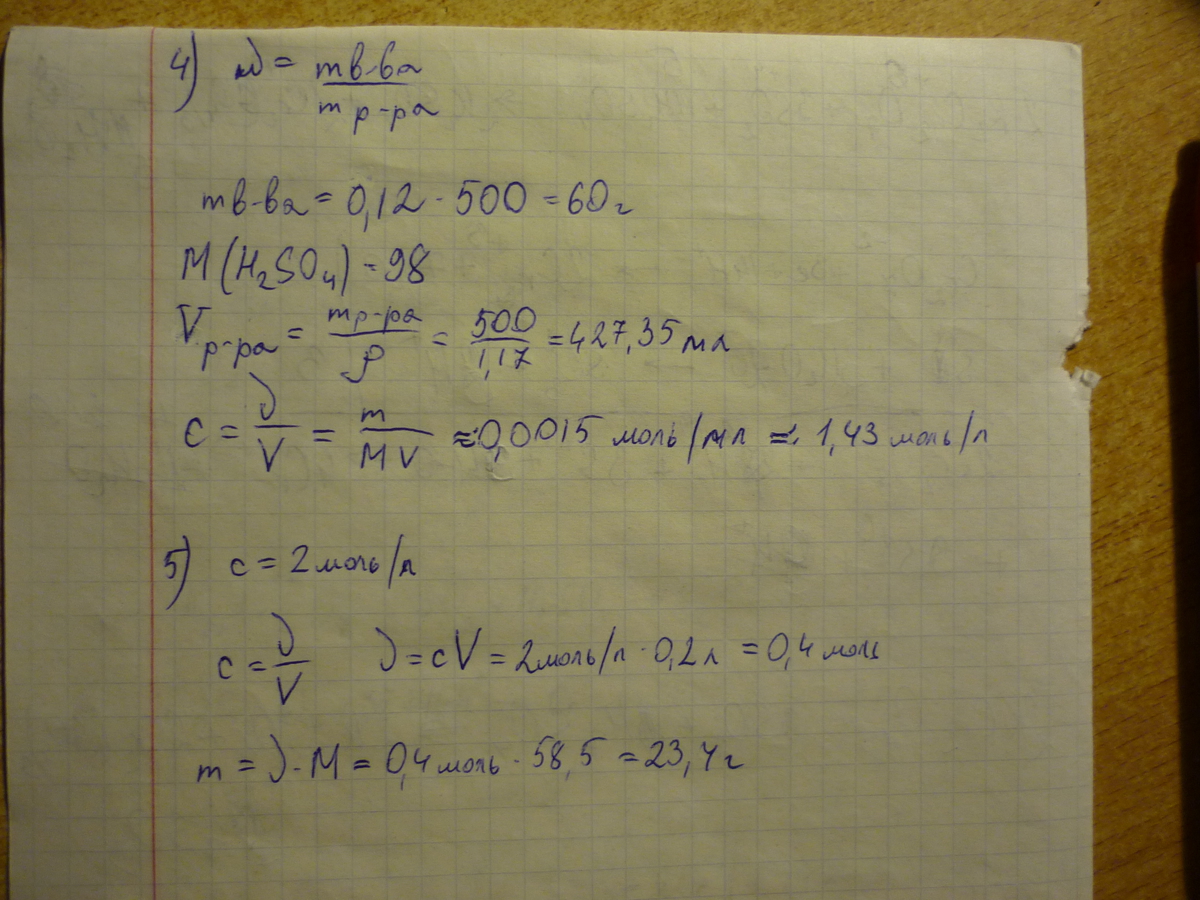 4) ω = m в-ва / m р-ра
m в-ва = 0,12 · 500 = 60 г
M(H₂SO₄) = 98
V р-ра = m р-ра / ρ = 500 / 1,17 = 427,35 мл
c = ν / V = m / MV ≈ 0,0015 моль/мл ≈ 1,43 моль/л
5) c = 2 моль/л
c = ν / V ν = cV = 2 моль/л · 0,2 л = 0,4 моль
m = ν · M = 0,4 моль · 58,5 = 23,4 г